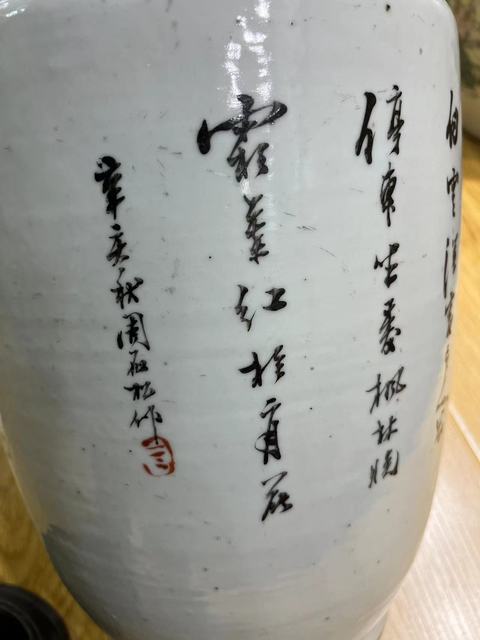 白雲深處
停車坐愛楓林晚
霜葉紅於二月花
辛亥秋周松作